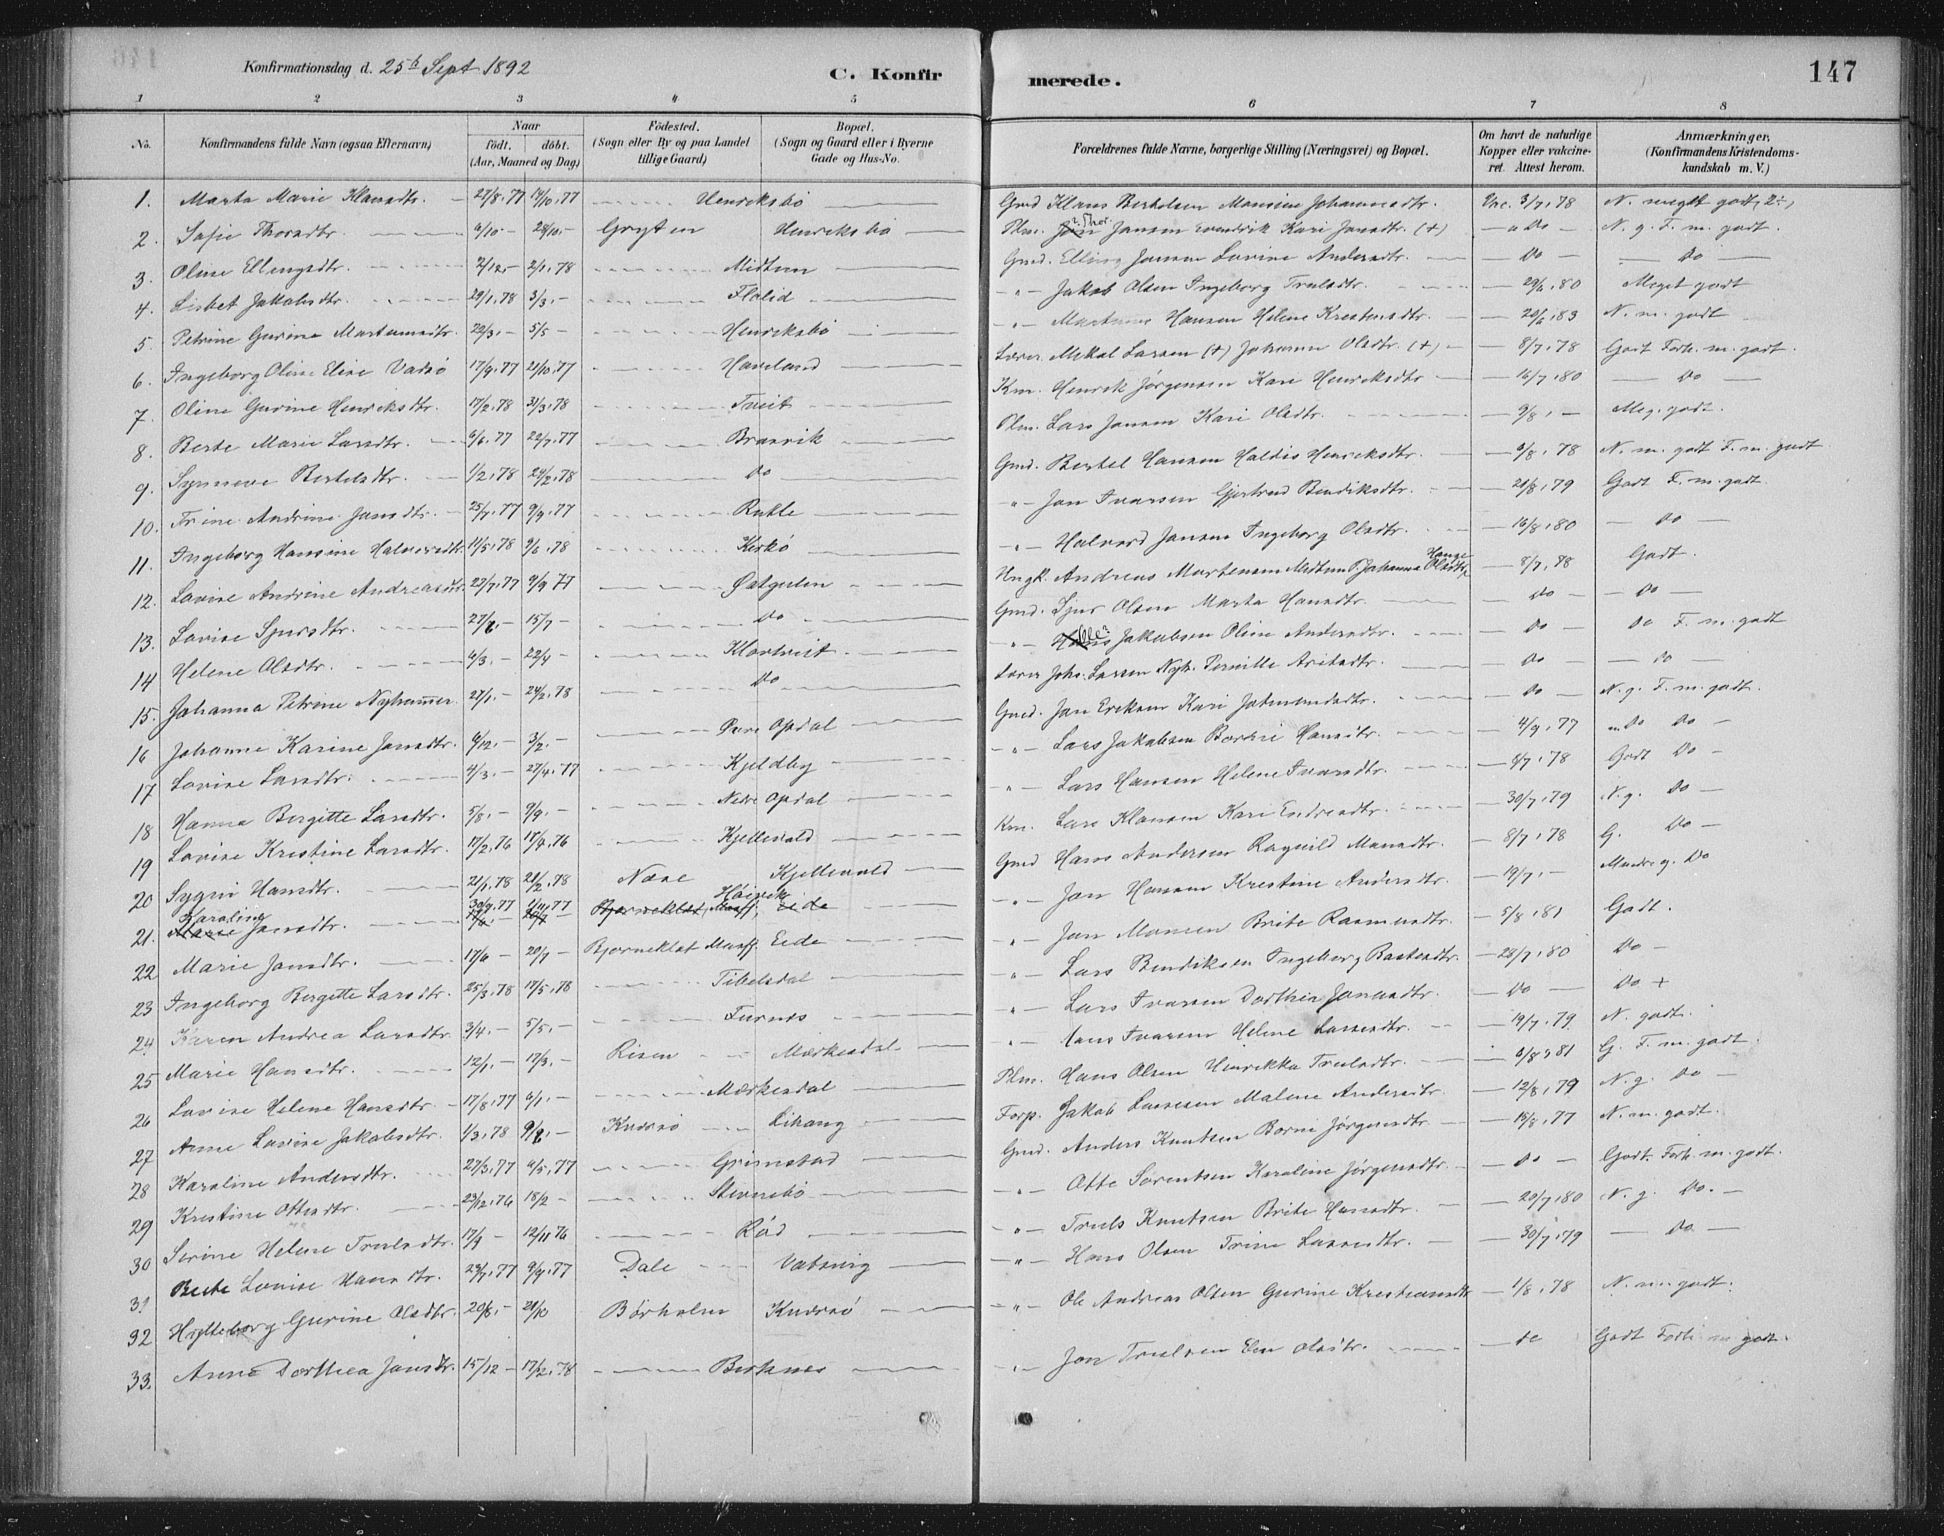 Konfirmationsdag d. 25de Sept 1892
C. Konfirmerede.
147
1 2 3 4 5 6 7 8
No. Konfirmandens fulde Navn (ogsaa Efternavn) Naar født. døbt. (Aar, Maaned og Dag) Fødested. (Sogn eller By og paa Landet tillige Gaard) Bopæl. (Sogn og Gaard eller i Byerne Gade og Hus-No. Forældrenes fulde Navne, borgerlige Stilling (Næringsvei) og Bopæl. Om havt de naturlige Kopper eller vaccineret. Attest herom. Anmærkninger. (Konfirmandens Kristendomskundskab m. V.)
1. Marta Marie Klausdtr. 27/8, 77 14/10, 77 Henriksbø Gmd Klaus Bertelsen Johannesdtr. Vac. 3/7, 78 N. meget godt
2. Sofie Thorsdtr. 4/10 - 28/10 - Gryten Henriksbø Plm. Thor Jansen Kari Jonsdtr. (+) - Do - N. g. F. m. godt.
3. Oline Ellingsdtr. 2/12 - 2/1, 78 Midtun Gmd. Elling Jansen Lovise Andersdtr. Do - Do -
4. Lisbet Jakobsdtr. 29/1, 78 3/3, - Flolid - " - Jakob Olsen Ingeborg Trulsdtr. 80 Meget godt
5. Petrine Gurine Martinusdtr. 22/3, - 5/5 - Henriksbø - " - Hansen Helene Kristensdtr. 83 N. m. godt
6. Ingeborg Oline Elise Vadsø 17/9, 77 21/10, 77 Haveland Lærer Mikal Larsen (+) Johanne Olsdtr. (+) 8/7, 78 Godt Forh. m. godt.
7. Oline Gurine Henriksdtr. 17/2, 78 31/3, 78 Tveit Km. Henrik Jørgensen Kari Henriksdtr 16/7, 80 Do
8. Berte Marie Larsdtr. 6/6, 77 22/7, 77 Brasvik Plm. Lars Jansen Kari Olsdtr. 9/8, - Meg. godt.
9. Synneve Bertelsdtr. 1/2, 78 24/2, 78 Do Gmd. Bertel Hansen Haldis Henriksdtr. 6/8, 78 N. m. godt F. m. godt
10. Trine Andrine Jansdtr. 25/7, 77 9/9, 77 Rutle - " - Jan Ivarsen Gjertrud Bendiksdtr. 20/8, 79 Godt F. m. godt.
11. Ingeborg Hansine Halvorsdtr. 11/5, 78 9/6, 78 Kirkø - " - Halvard Jansen Ingeborg Olsdtr. 16/8, 80 - Do -
12. Lovise Andrine Andreasdtr. 22/7, 77 9/9 77 Østgulen Ungk. Andreas Martensen Midtun P. Johanna Olsdtr. 8/7, 78 Godt.
13. Lovise Sjursdtr. 15/7 - Do Gmd. Sjur Olsen Marta Hansdtr. Do - Do -
14 Helene Olsdtr. 4/3, - 22/4 - Klavtveit - " - Ole Jakobsen Oline Andersdtr. Do Do F. m. godt
15. Johanna Petrine Nyhammer 27/1, - 24/2, 78 Do Lærer Johs. Larsen Nyh. Pernille Do - Do -
16 Johanne Karine Jansdtr. 4/12, - 3/2, - Øvre Opdal Gmd. Jan Eriksen Kari Do N. g. F. m. godt.
17 Lovise Larsdtr. 4/3, - 27/4, 77 Kjeldby - " - Lars Jakobsen Hansdtr. 4/9, 77 Do Do -
18 Hanna Bergitte Larsdtr. 5/8, - 9/9, - Nedre Opdal - " - Lars Hansen Helene Ivarsdtr. 78 Godt Do -
19 Lovise Kristine Larsdtr. 17/2, 76 17/4, 76 Kjellevold Km. Lars Klausen Kari Endresdtr. 30/7, 79 N. g. Do -
20 Sygni Hansdtr. 21/1, 78 21/2, 78 Nese Kjellevold Gmd Hans Andersen Ragnild Monsdtr. 8/7, 78 G. Do -
21. Karoline Jansdtr. 30/9, 77 4/11, 77 Høivik - " - Jan Hansen Kristine Andersdtr. 19/7, - Mindre g. Do
22 Marie Jansdtr. 17/6 - 20/7 - Bjorneklet Eide - " - Jan Monsen Brite Rasmusdtr. 5/8, 81 Godt.
23 Ingeborg Bergitte Larsdtr. 25/3, 78 17/5, 78 Tibelsdal - " - Lars Bendiksen Ingeborg Rastesdtr. 28/7, 80 Do -
24. Karen Andrea Larsdtr. 3/4, - 5/5, - Furnes - " - Lars Ivarsen Dorthea Jonasdtr. Do Do +
25 Marie Hansdtr. 12/1, - 17/3, - Risen Mørkesdal - " - Hans Ivarsen Helene Lassesdtr. 19/7, 79 N. godt.
26 Lovise Helene Hansdtr. 17/8, 77 6/1, - Mørkesdal Plm. Hans Olsen Henrikka Trulsdtr. 81 G. F. m. godt.
27 Anne Lovise Jakobsdtr. 1/3, 78 Knarsø Lihaug Forp. Jakob Lassesen Malene Andersdtr. 12/8, 79 N. g. Do -
28 Karoline Andersdtr. 27/3, 77 6/5, 77 Grimstad Gmd. Anders Knutsen Jørgensdtr. 19/8, 77 N. m. godt.
29 Kristine Ottesdtr. 23/12, 76 18/2 - Stevnebø - " - Otte Sørensen Karoline Jørgensdtr. Do Godt. Forh. m. godt.
30 Serine Helene Trulsdtr. 12/11 76 Rød - " - Truls Knutsen Brite Hansdtr. 20/7, 80 N. g. Do. -
31 Berte Lovise Hansdtr. 9/9, 77 Dale Vatsvig - " - Hans Olsen Trine Lassesdtr. 30/7, 79 - Do -
32 Hylleborg Gurine Olsdtr. 20/8, - 21/10 Børholm Knarsø - " - Ole Andreas Olsen Gurine Kristiansdtr 1/8, 78 N. m. godt.
33. Anne Dorthea Jansdtr. 15/12 - 17/2, 78 Birknes " - Jan Trulsen Olsdtr. Do Godt Forh. m. godt.